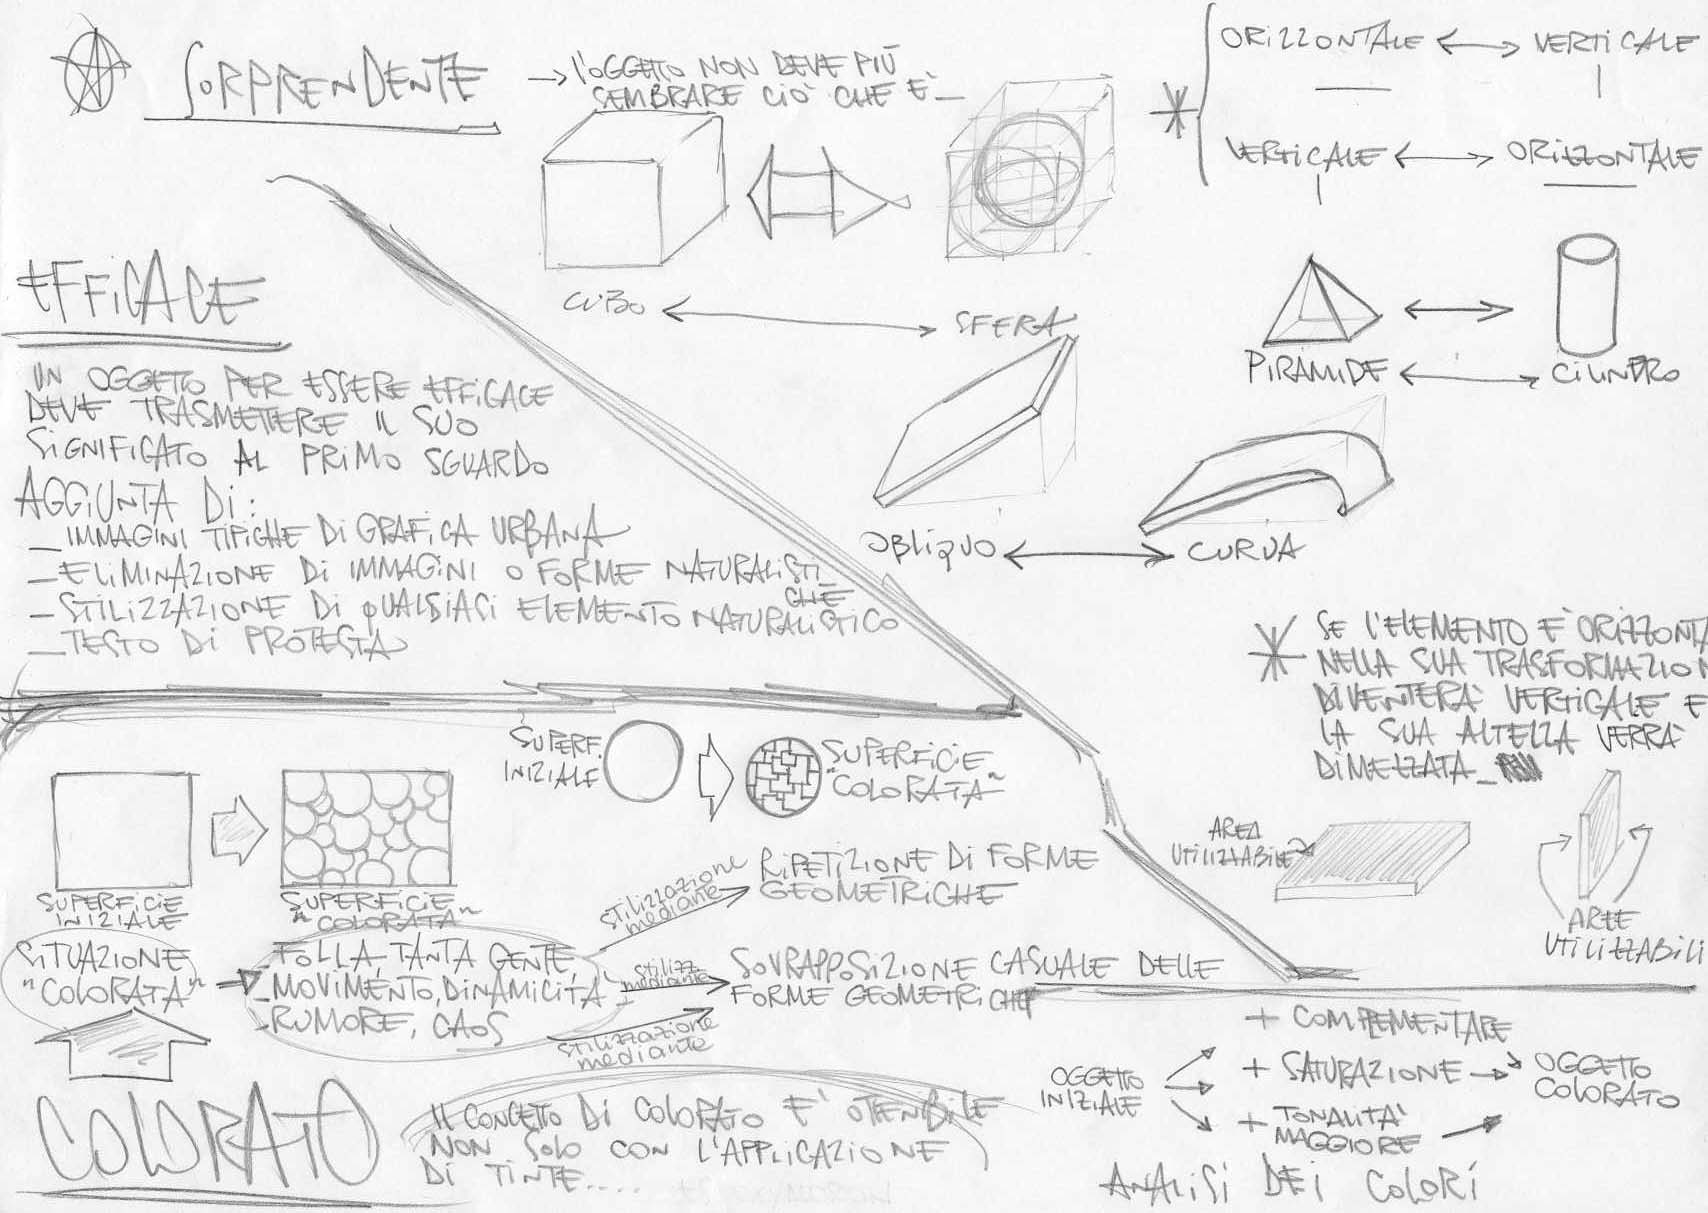 SORPRENDENTE
→ l'OGGETTO NON DEVE PIÙ
SEMBRARE CIÒ CHE È_
CUBO ↔ SFERA
ORIZZONTALE ↔ VERTICALE
VERTICALE ↔ ORIZZONTALE
PIRAMIDE ↔ CILINDRO
OBLIQUO ↔ CURVA
SE L'ELEMENTO È ORIZZONTA
NELLA SUA TRASFORMAZION
DIVENTERÀ VERTICALE E
LA SUA ALTEZZA VERRÀ
DIMEZZATA_
AREA
UTILIZZABILE
AREE
UTILIZZABILI
EFFICACE
UN OGGETTO PER ESSERE EFFICACE
DEVE TRASMETTERE IL SUO
SIGNIFICATO AL PRIMO SGUARDO
AGGIUNTA DI:
_IMMAGINI TIPICHE DI GRAFICA URBANA
_ELIMINAZIONE DI IMMAGINI O FORME NATURALISTI_
CHE
_STILIZZAZIONE DI QUALSIASI ELEMENTO NATURALISTICO
_TESTO DI PROTESTA
SUPERF.
INIZIALE
SUPERFICIE
"COLORATA"
SUPERFICIE
INIZIALE
SUPERFICIE
"COLORATA"
SITUAZIONE
"COLORATA"
_FOLLA, TANTA GENTE,
_MOVIMENTO, DINAMICITÀ
_RUMORE, CAOS
stilizzazione
mediante
RIPETIZIONE DI FORME
GEOMETRICHE
stilizz.
mediante
SOVRAPPOSIZIONE CASUALE DELLE
FORME GEOMETRICHE
stilizzazione
mediante
COLORATO
Il CONCETTO DI COLORATO E' OTTENIBILE
NON SOLO CON L'APPLICAZIONE
DI TINTE....
OGGETTO
INIZIALE
+ COMPLEMENTARE
+ SATURAZIONE
+ TONALITA'
MAGGIORE
OGGETTO
COLORATO
ANALISI DEI COLORI